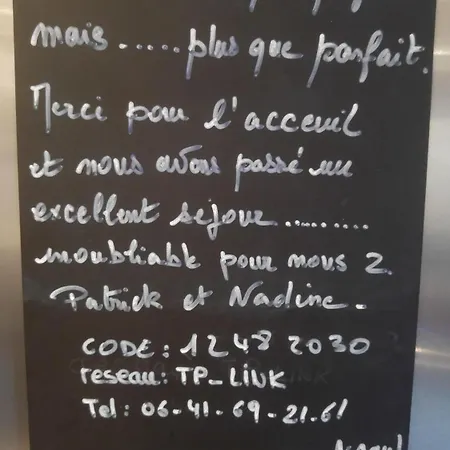 mais.....plus que parfait.
Merci pour l'acceuil
et nous avons passé un
excellent sejour..........
inoubliable pour nous 2.
Patrick et Nadine.
CODE: 1248 2030
reseau: TP_LiNK
Tel: 06-41-69-21-61